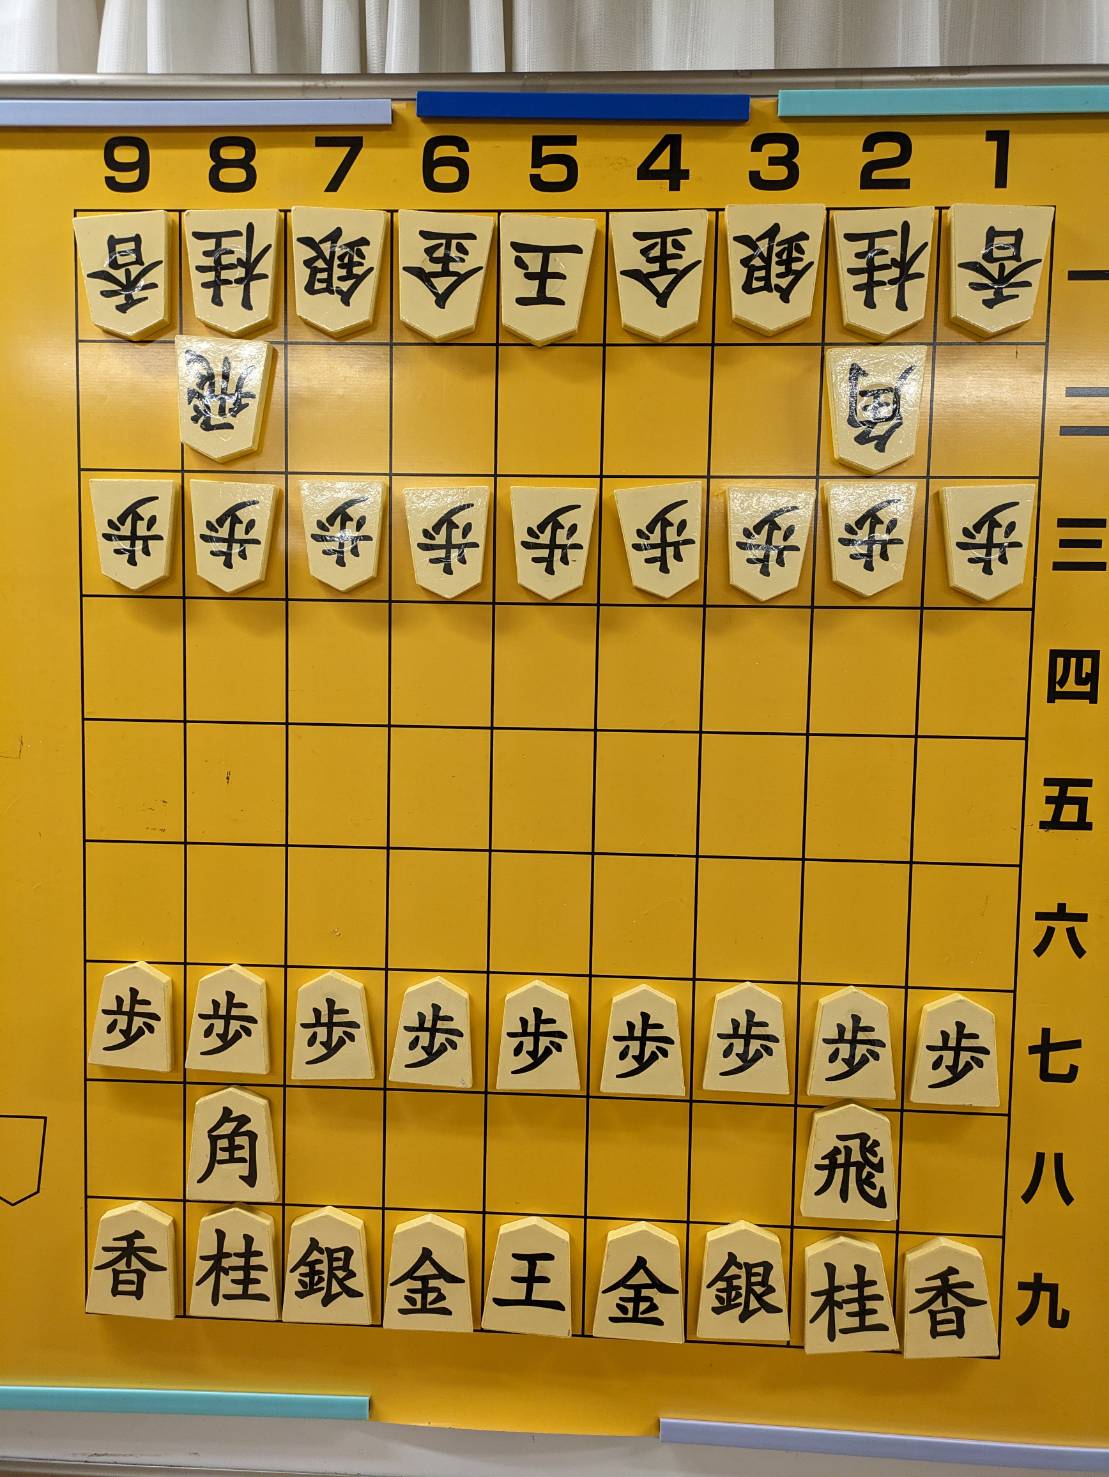 9 8 7 6 5 4 3 2 1
香 桂 銀 金 玉 金 銀 桂 香 一
飛 角 二
歩 歩 歩 歩 歩 歩 歩 歩 歩 三
四
五
六
歩 歩 歩 歩 歩 歩 歩 歩 歩 七
角 飛 八
香 桂 銀 金 王 金 銀 桂 香 九